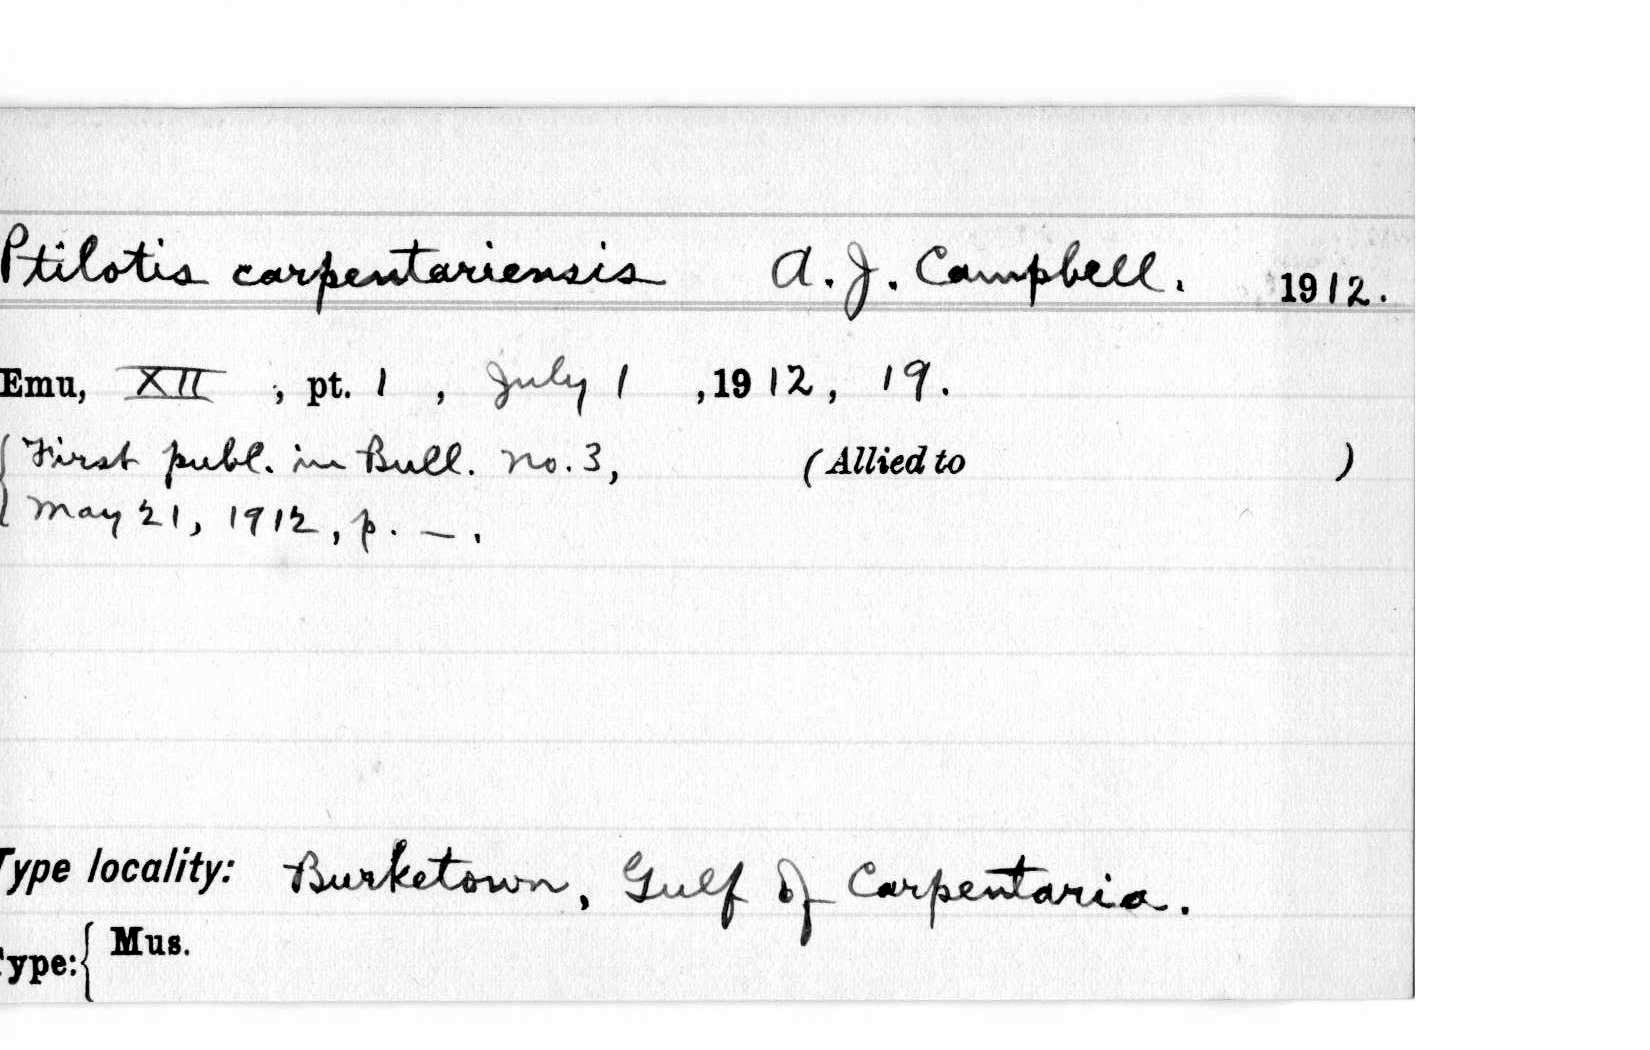 Ptilotis carpentariensis A. J. Campbell. 1912.
Emu, XII, pt. 1, July 1, 1912, 19.
{First publ. in Bull. No. 3, (Allied to )
{May 21, 1912, p. —.
Type locality: Burketown, Gulf of Carpentaria.
Type:{ Mus.